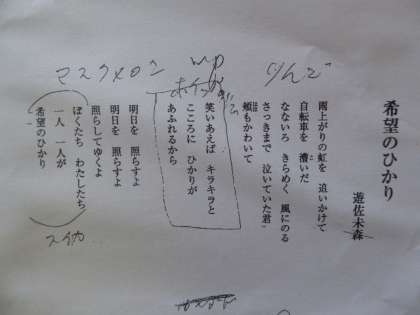 希望のひかり
遊佐未森
雨上がりの虹を　追いかけて
自転車を　漕いだ
なないろ　きらめく　風にのる
さっきまで　泣いていた君
頬もかわいて
笑いあえば　キラキラと
こころに　ひかりが
あふれるから
明日を　照らすよ
明日を　照らすよ
照らしてゆくよ
ぼくたち　わたしたち
一人　一人が
希望のひかり
りんご
マスクメロン
スイカ